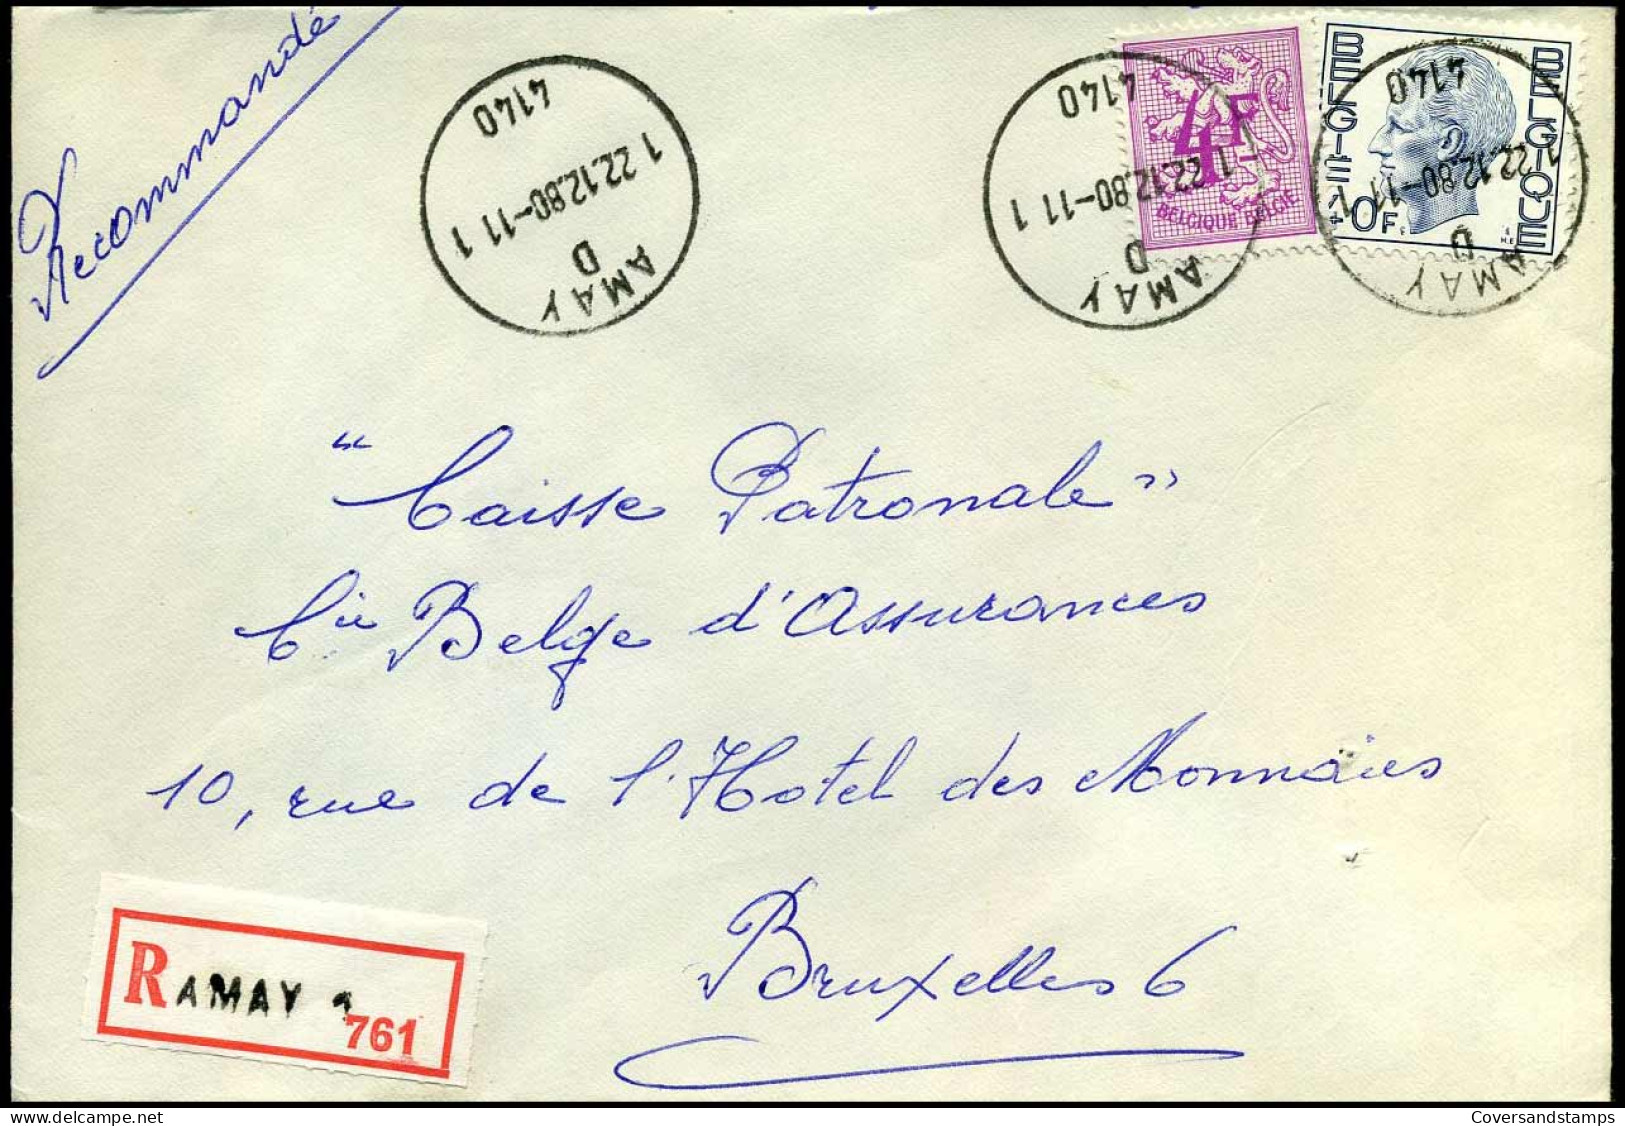 Recommandé
4140
1 22.12.80-11 1
AMAY
D
4140
1 22.12.80-11 1
AMAY
D
4F
BELGIQUE BELGIE
BELGIE
BELGIQUE
4140
1 22.12.80-11 1
AMAY
D
"Caisse Patronale"
Cie Belge d'Assurances
10, rue de l'Hotel des Monnaies
Bruxelles 6
R AMAY 1
761
Coversandstamps